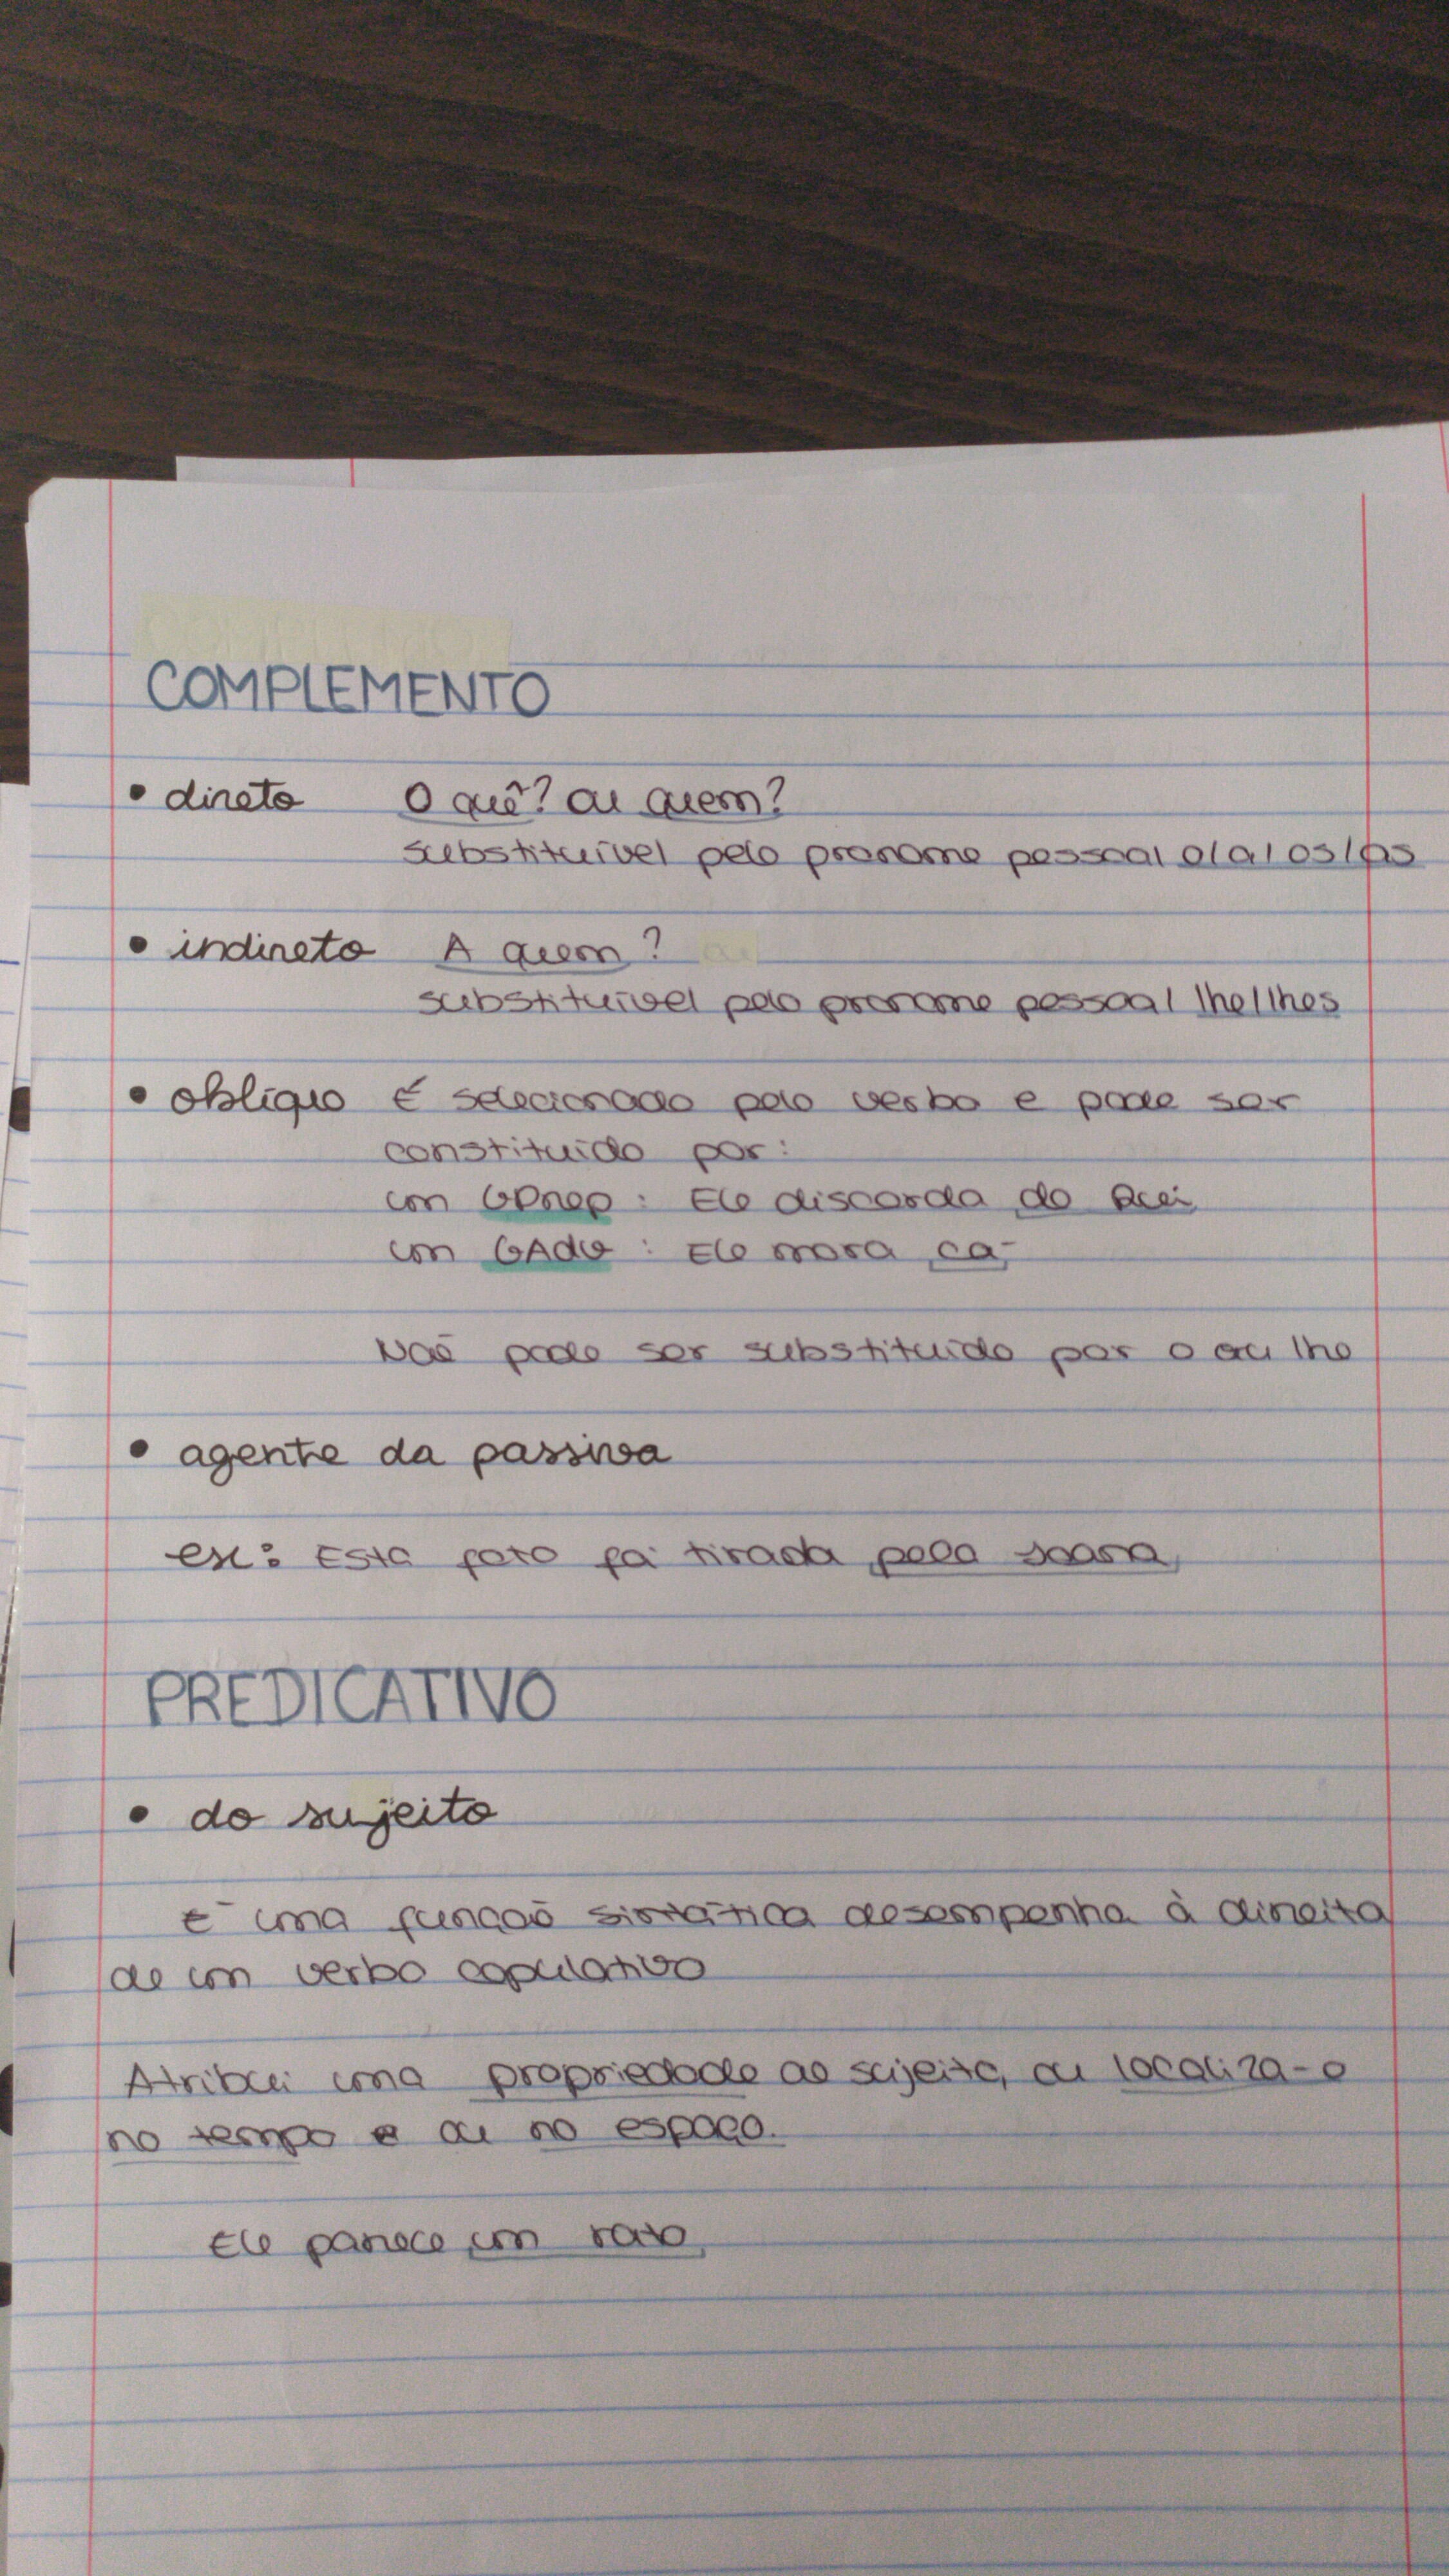 COMPLEMENTO
• direto O quê? ou quem?
substituível pelo pronome pessoal o/a/os/as
• indireto A quem?
substituível pelo pronome pessoal lhe/lhes
• oblíquo É selecionado pelo verbo e pode ser
constituído por:
um GPrep: Ele discorda do
um GAdv: Ele mora cá
Não pode ser substituido por o ou lhe
• agente da passiva
ex: Esta foto foi tirada pela
PREDICATIVO
• do sujeito
é uma função sintática desempenha à direita
de um verbo copulativo
Atribui uma propriedade ao sujeito, ou localiza-o
no tempo e ou no espaço.
Ele parece um